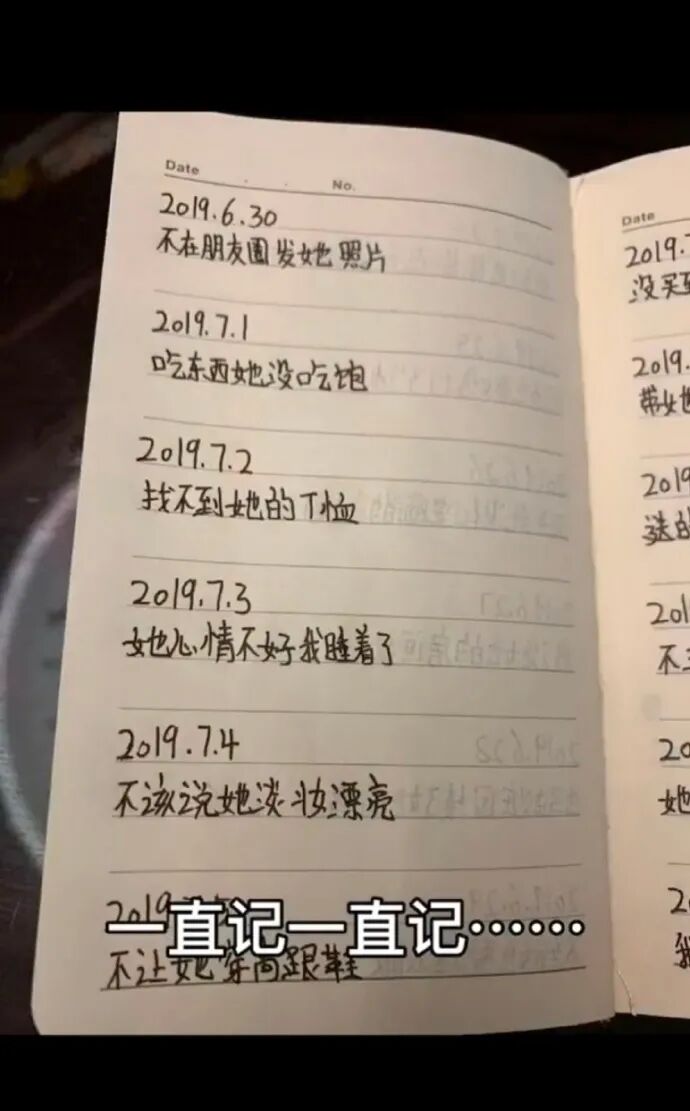 Date
No.
2019.6.30
不在朋友圈发她照片
2019.7.1
吃东西她没吃饱
2019.7.2
找不到她的T恤
2019.7.3
她心情不好我睡着了
2019.7.4
不该说她淡妆漂亮
2019.
一直记一直记……
不让她穿高跟鞋
Date
2019.7
没买到
2019.
带她
2019
送的
201
不
20
她
2
我